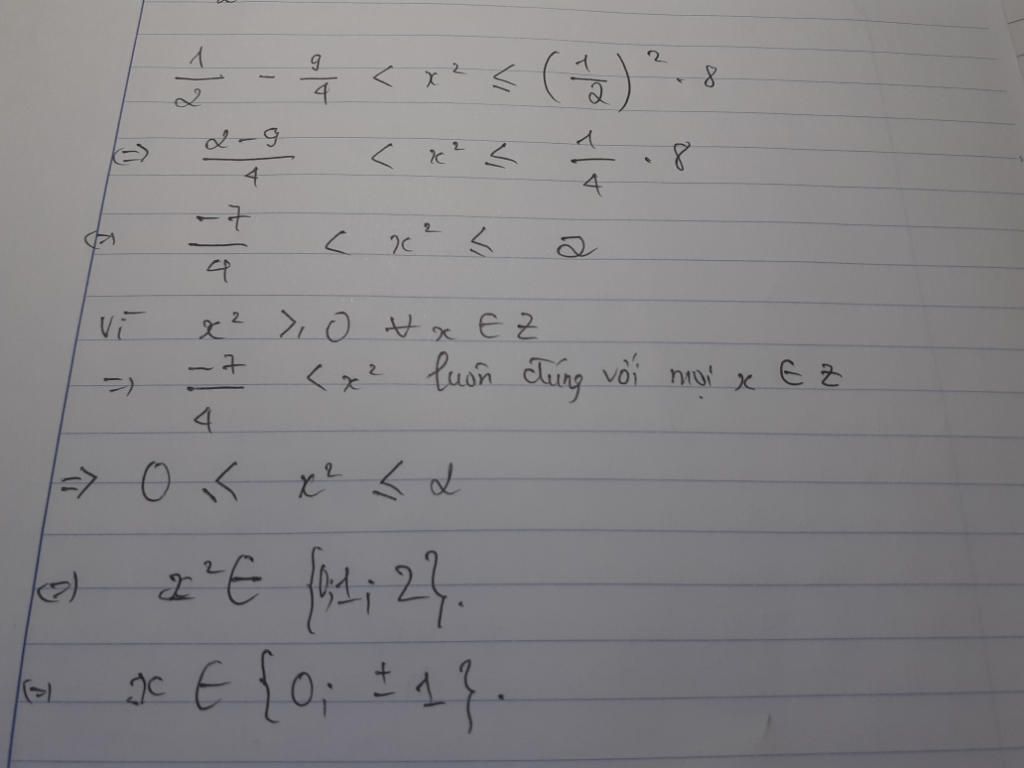 1/2 - 9/4 < x² ≤ (1/2)² . 8
⇔ (2-9)/4 < x² ≤ 1/4 . 8
⇔ -7/4 < x² ≤ 2
Vì x² ≥ 0 ∀ x ∈ Z
⇒ -7/4 < x² luôn đúng với mọi x ∈ Z
⇒ 0 ≤ x² ≤ 2
⇔ x² ∈ {0;1; 2}.
⇔ x ∈ {0; ± 1}.